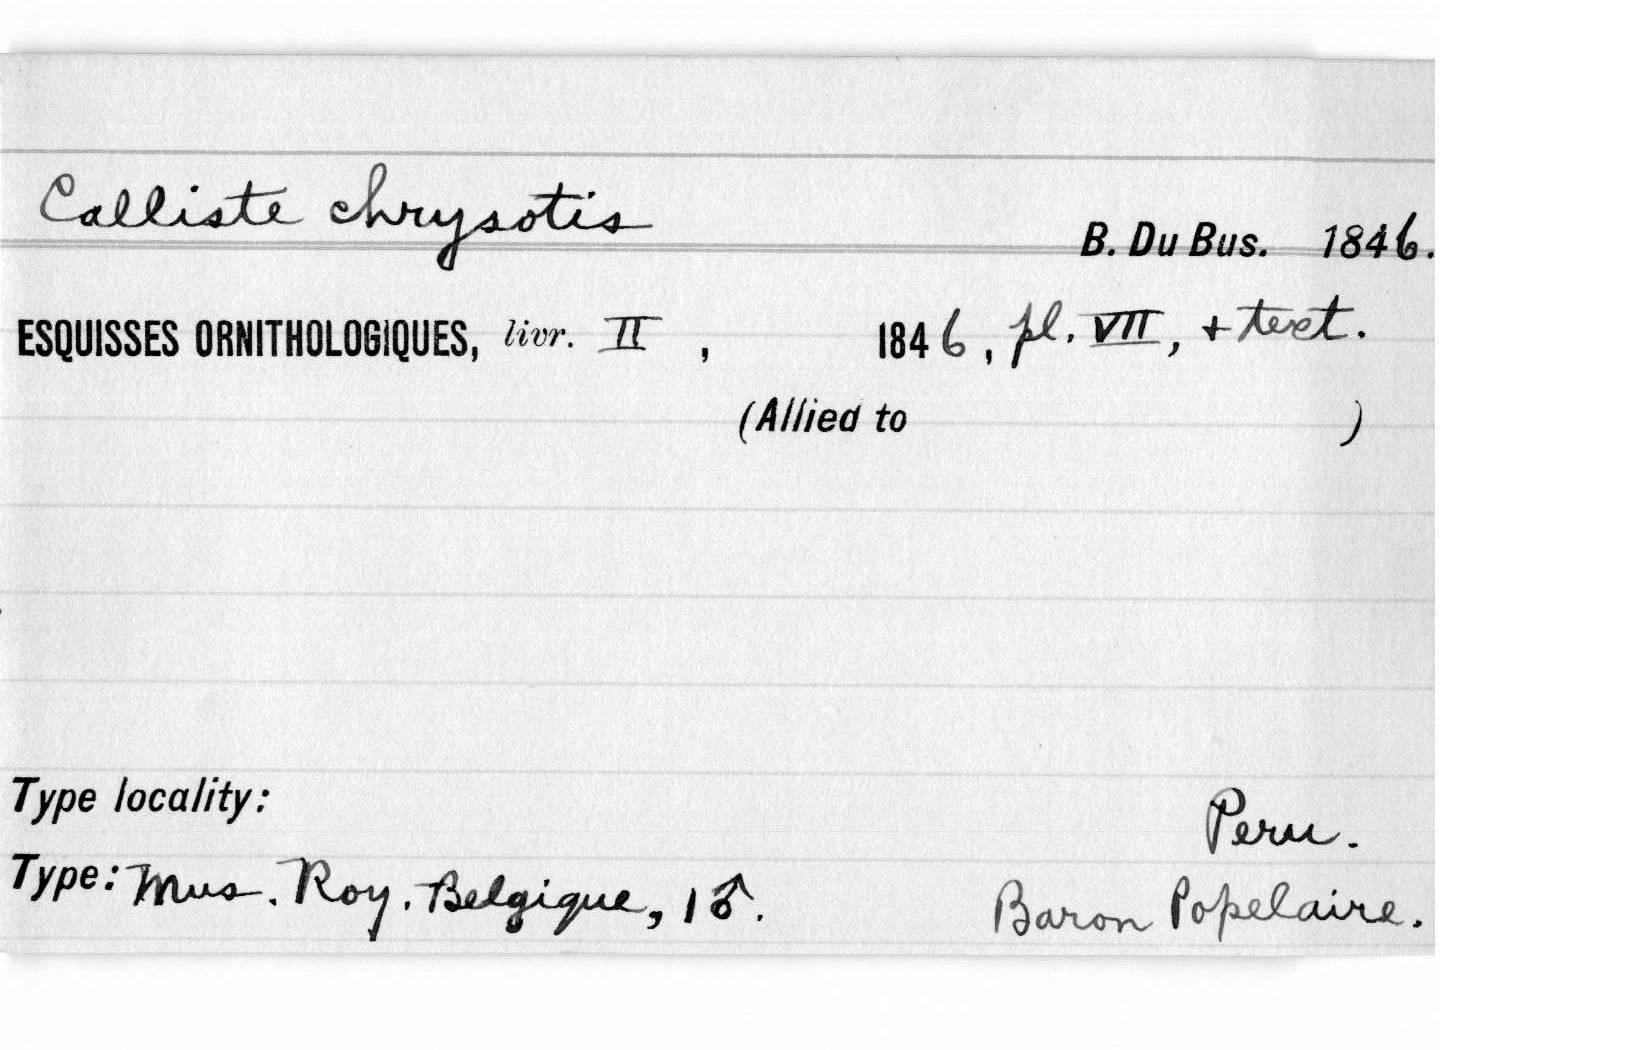 Calliste chrysotis
B. Du Bus. 1846.
ESQUISSES ORNITHOLOGIQUES, livr. II , 1846, pl. VII, + text.
(Allied to )
Type locality: Peru.
Type: Mus. Roy. Belgique, 1♂. Baron Popelaire.